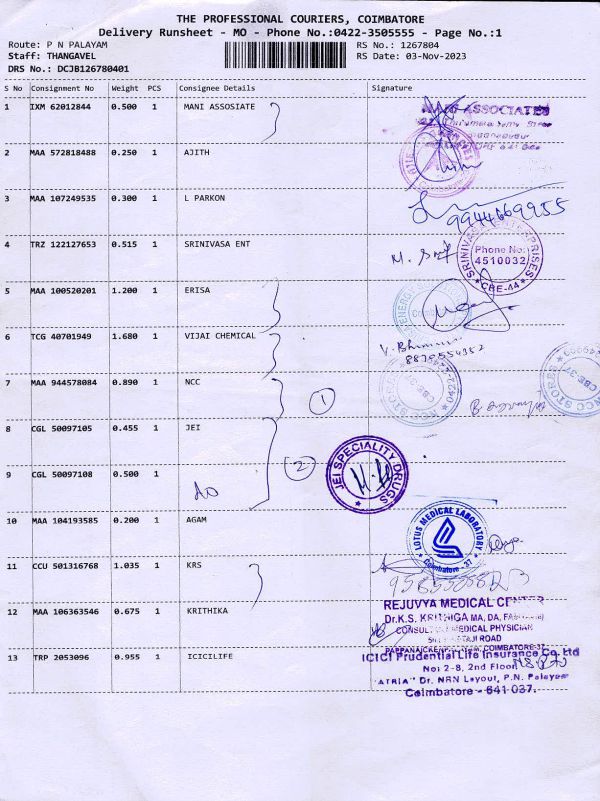 THE PROFESSIONAL COURIERS, COIMBATORE
Delivery Runsheet - MO - Phone No.:0422-3505555 - Page No.:1
Route: P N PALAYAM RS No.: 1267804
Staff: THANGAVEL RS Date: 03-Nov-2023
DRS No.: DCJB126780401
S No Consignment No Weight PCS Consignee Details Signature
1 IXM 62012844 0.500 1 MANI ASSOSIATE
ASSOCIATES
2 MAA 572818488 0.250 1 AJITH
3 MAA 107249535 0.300 1 L PARKON
9944669955
4 TRZ 122127653 0.515 1 SRINIVASA ENT
SRINIVASA ENTERPRISES
Phone No:
4510032
CBE-44
5 MAA 100520201 1.200 1 ERISA
6 TCG 40701949 1.680 1 VIJAI CHEMICAL
7 MAA 944578084 0.890 1 NCC
1
NCC STORES
CBE-37
8 CGL 50097105 0.455 1 JEI
2
JEI SPECIALITY DRUGS
9 CGL 50097108 0.500 1
10 MAA 104193585 0.200 1 AGAM
LOTUS MEDICAL LABORATORY
Coimbatore - 37
11 CCU 501316768 1.035 1 KRS
12 MAA 106363546 0.675 1 KRITHIKA
REJUVYA MEDICAL CENTER
Dr.K.S. KRITHIGA MA, DA,
CONSULTANT MEDICAL PHYSICIAN
ROAD
PAPPANAICKENPALAYAM, COIMBATORE-37
13 TRP 2053096 0.955 1 ICICILIFE
ICICI Prudential Life Insurance Co. Ltd
No: 2-8, 2nd Floor
"ATRIA" Dr. NRN Layout, P.N. Palayam
Coimbatore - 641 037.